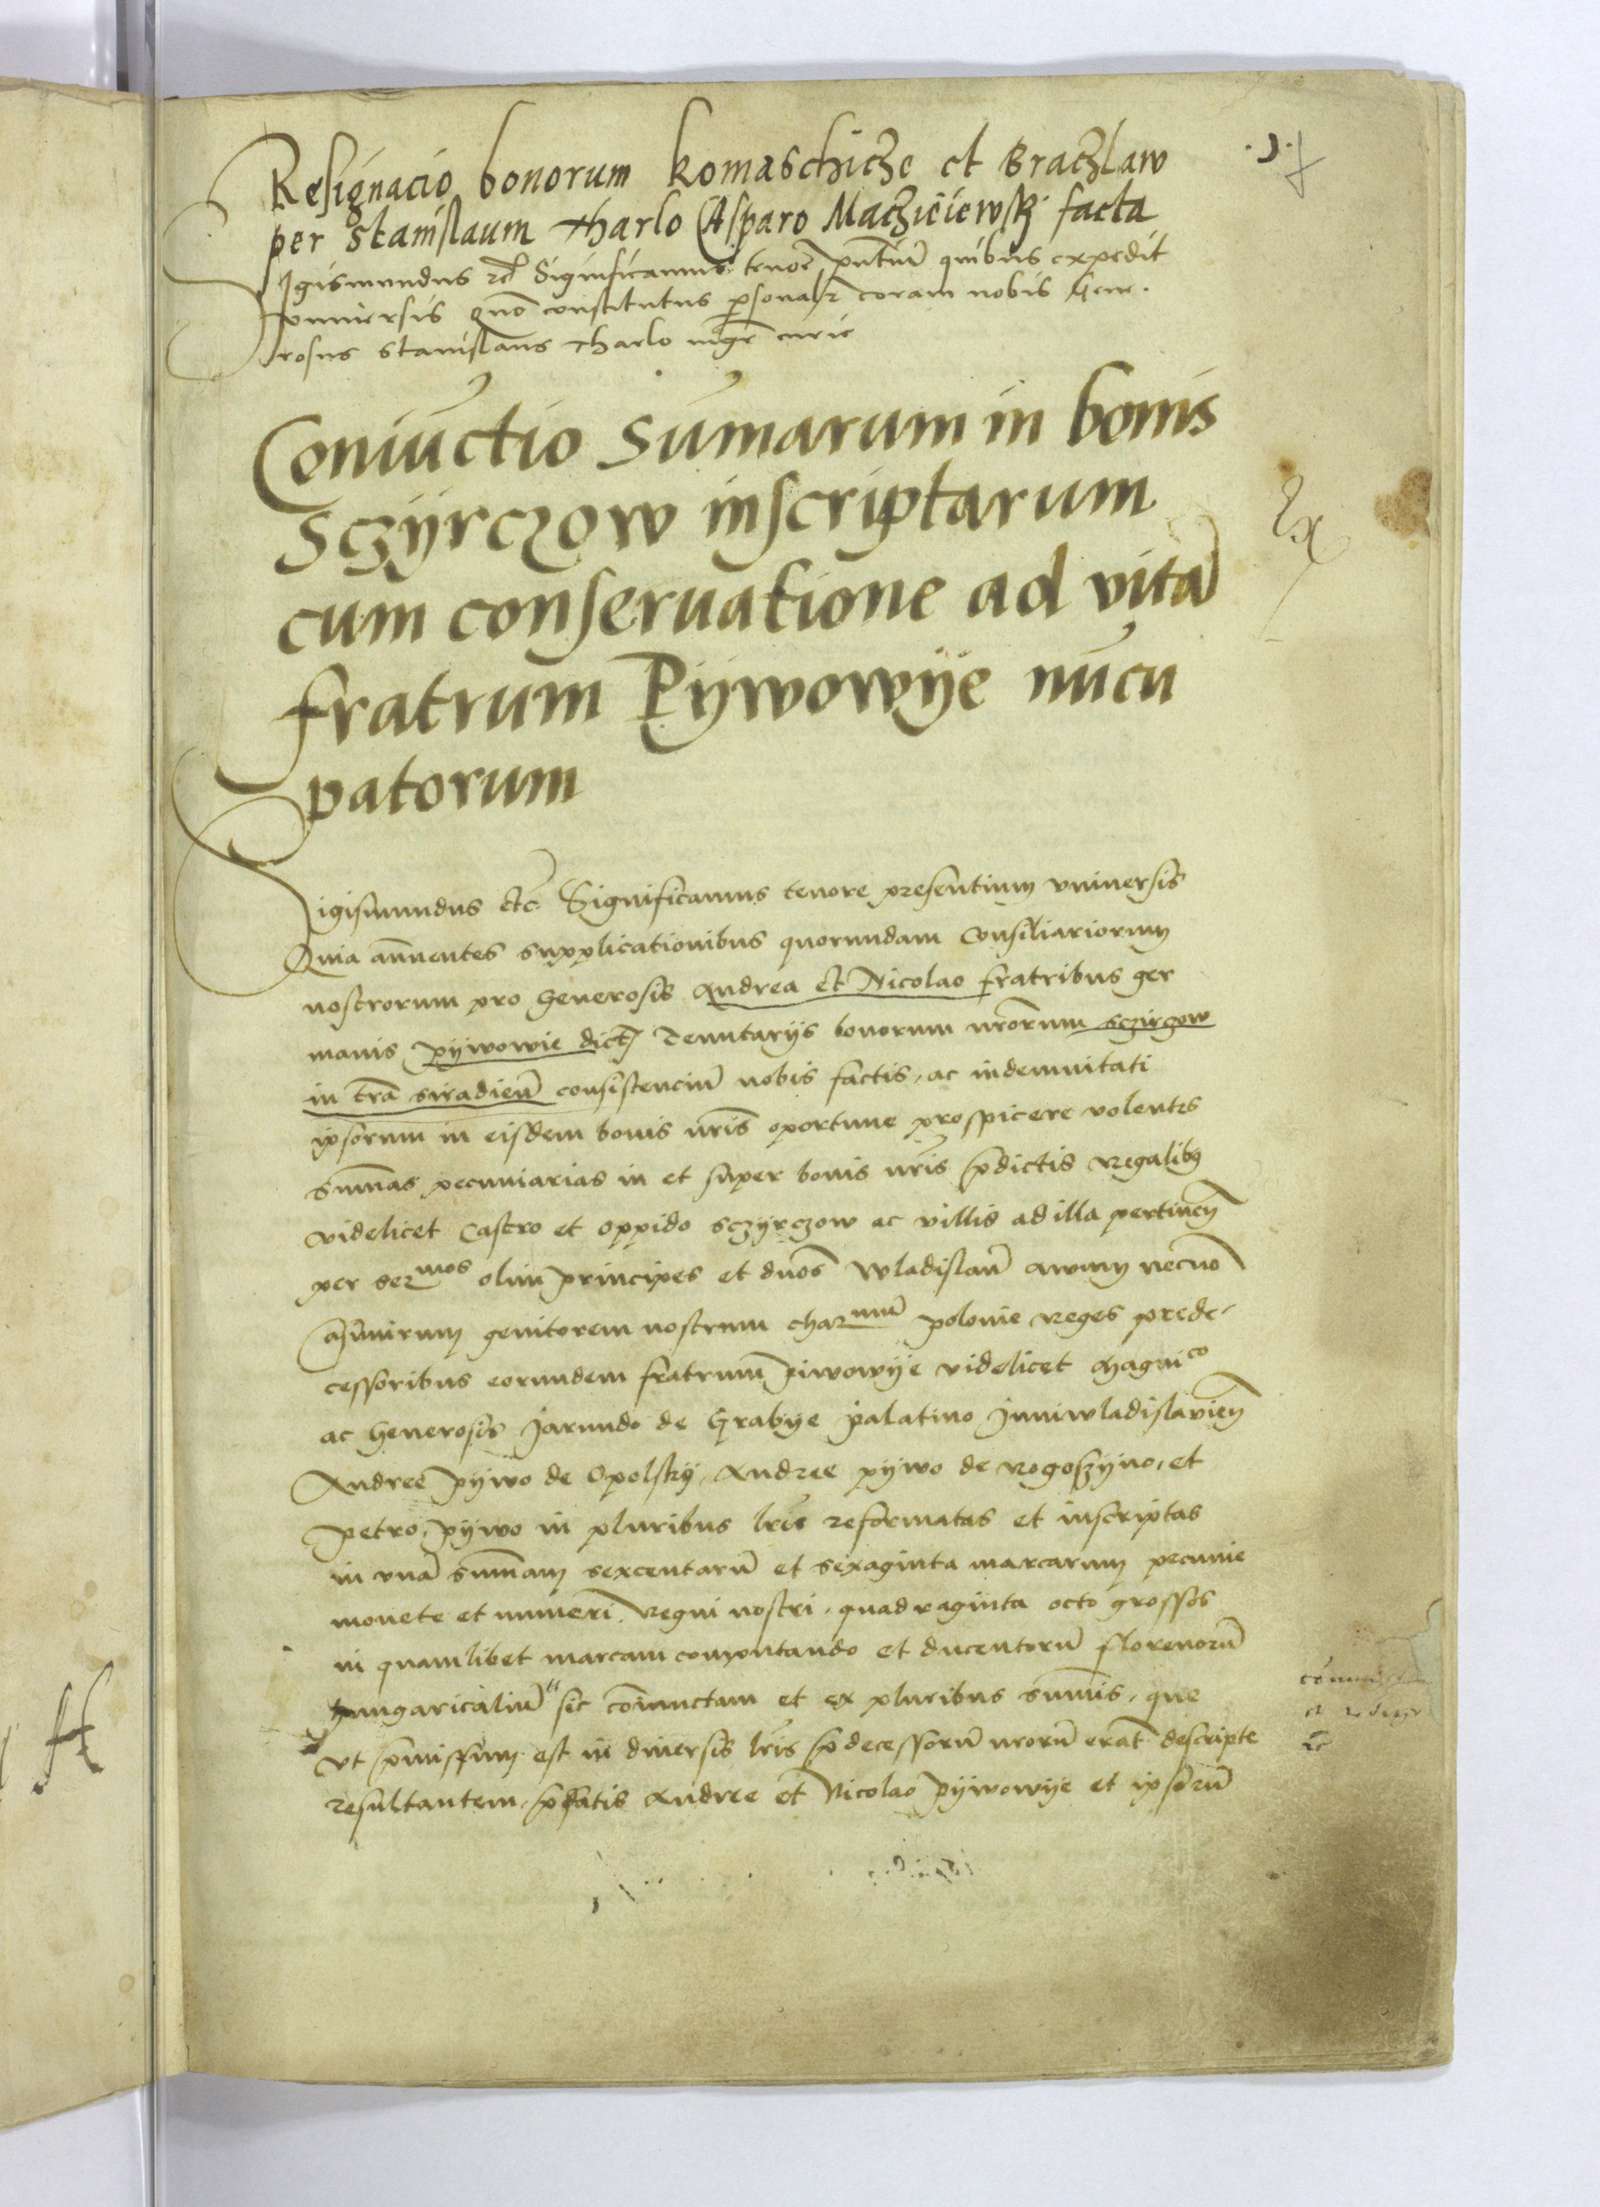 .J.
Resignacio bonorum komaschicze et Braczlaw
per Stanislaum tharlo Casparo Macziеiewsky facta
Sigismundus etc Significamus tenore pntiū quibus expedit
vniuersis quō constitutus personalr coram nobis Gene-
rosus Stanislaus tharlo curie
Coniūctio sum̄arum in bonis
Sczÿrczow inscriptarum
cum conseruatione ad vitā
fratrum Pÿwowÿe nūcu
patorum
Ex
Sigismundus etc Significamus tenore presentium vniuersis
Quia annuentes supplicationibus quorundam Consiliariorum
nostrorum pro Generosis Andrea et Nicolao fratribus ger
manis pÿwowie dict Tenutarÿs bonorum nrorum sczirzow
in trā siradien̄ consistenciū nobis factis, ac indemnitati
ipsorum in eisdem bonis nr̄is oportune prospicere volentes
sum̄as pecuniarias in et super bonis nr̄is pdictis regalibus
videlicet Castro et oppido sczÿrczow ac villis ad illa pertinen̄
per ser mos olim principes et dnos Wladislau̅ awum necno̅
Casimirum genitorem nostrum char mum polonie reges prede-
cessoribus eorundem fratrum piwowÿe videlicet Magnico
ac Generosis Jarundo de Grabÿe palatino Juniwladislavien̄
Andree pÿwo de Opolskÿ, Andree pÿwo de rogoszÿno, et
petro pÿwo in pluribus lr̄is reformatas et inscriptas
in vnā sum̄am sexcentarū et sexaginta marcarum pecunie
monete et numeri regni nostri, quadraginta octo grossos
in quamlibet marcam computando et ducentorū florenorū
hungaricaliū sic coniunctam et ex pluribus sum̄is, que
vt pmissum est in diuersis lr̄is pdecessorū nrorū erāt descripte
resultantem, pfatis Andree et Nicolao pÿwowÿe et ipsorū